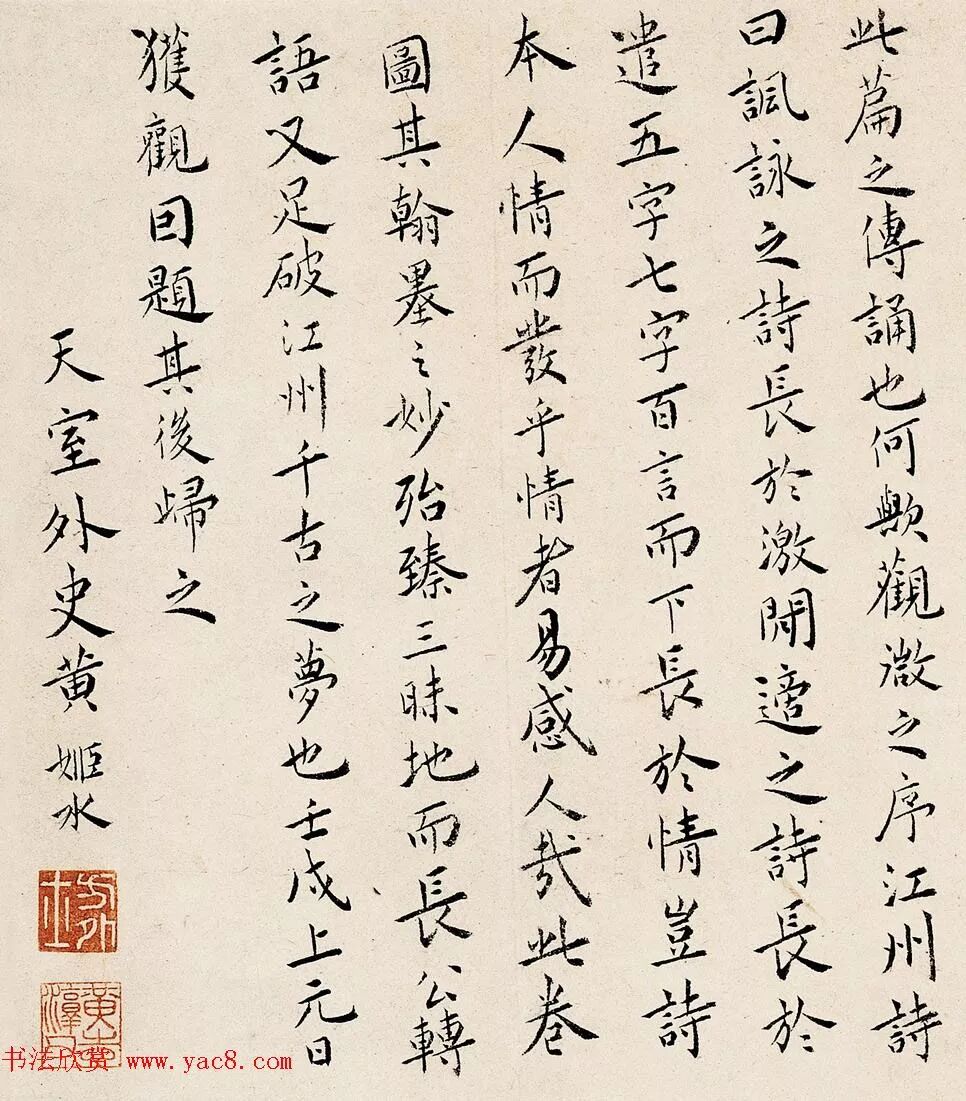 此篇之傳誦也何歟觀微之序江州詩
曰諷詠之詩長於激閒適之詩長於
遣五字七字百言而下長於情豈詩
本人情而發乎情者易感人哉此卷
圖其翰墨之妙殆臻三昧地而長公轉
語又足破江州千古之夢也壬戌上元日
獲觀因題其後歸之
天室外史黃姬水
书法欣赏 www.yac8.com